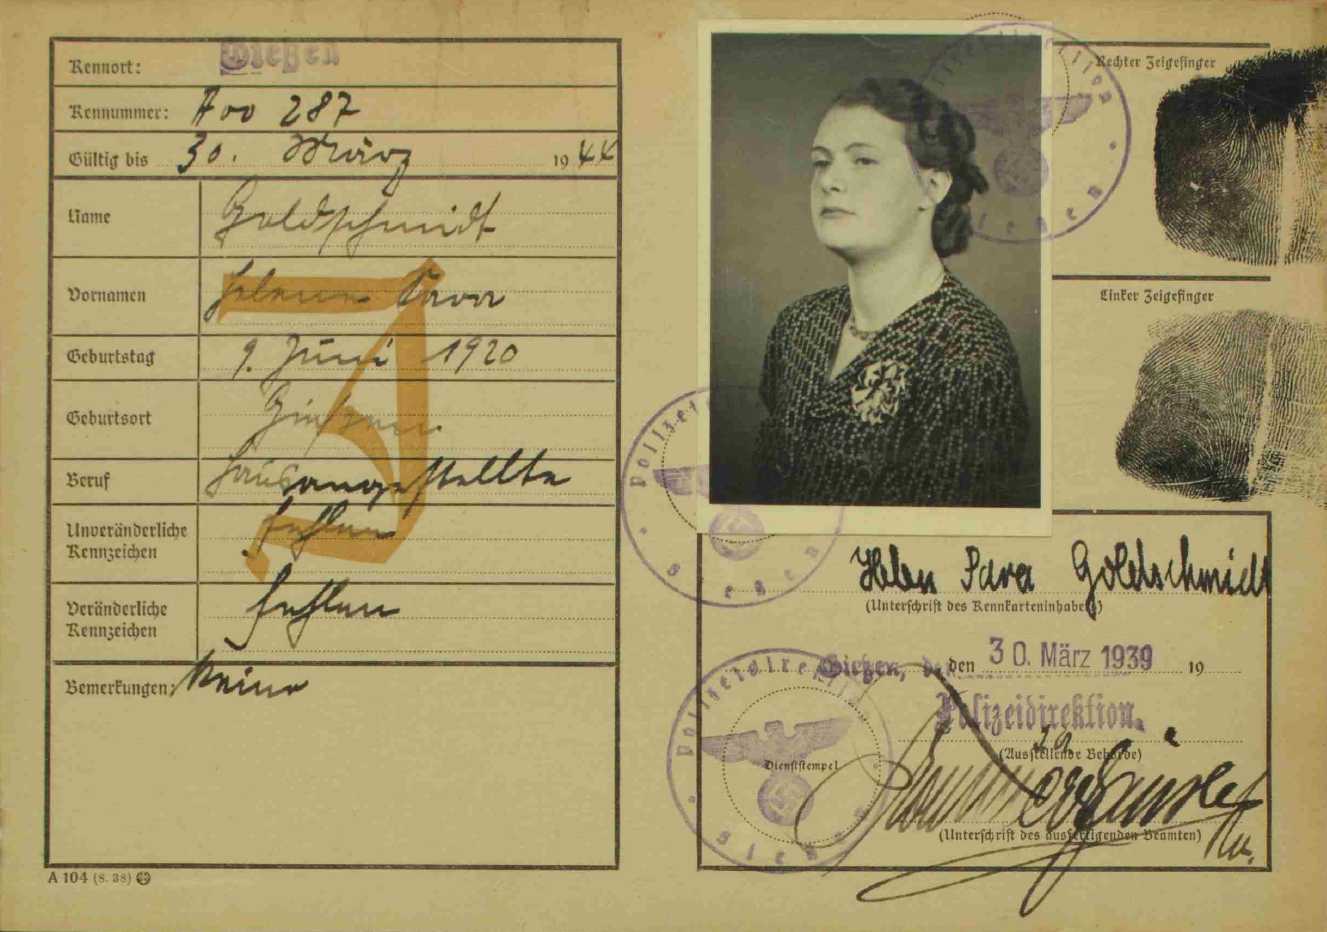 Kennort: Gießen
Kennummer: A 00 287
Gültig bis 30. März 1944
Name Goldschmidt
Vornamen Helene Sara
J
Geburtstag 9. Juni 1920
Geburtsort Giessen
Beruf Hausangestellte
Unveränderliche Kennzeichen fehlen
Veränderliche Kennzeichen fehlen
Bemerkungen: Keine
A 104 (8. 38)
Polizeidirektion Giessen
Rechter Zeigefinger
Linker Zeigefinger
Polizeidirektion Giessen
Helen Sara Goldschmidt
(Unterschrift des Kennkarteninhabers)
Gießen, den den 30. März 1939 19
Polizeidirektion.
(Ausstellende Behörde)
Polizeidirektion Giessen
Dienststempel
(Unterschrift des ausfertigenden Beamten)